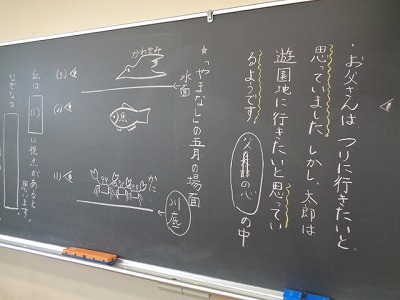 ・お父さんは、つりに行きたいと
思っていました。しかし、太郎は
遊園地に行きたいと思ってい
るようです。
父の心の中
*「やまなし」の五月の場面
水面
かわせみ
魚
かに
川底
(3)
(2)
(1)
私は(1)に視点があると
思います。
なぜなら